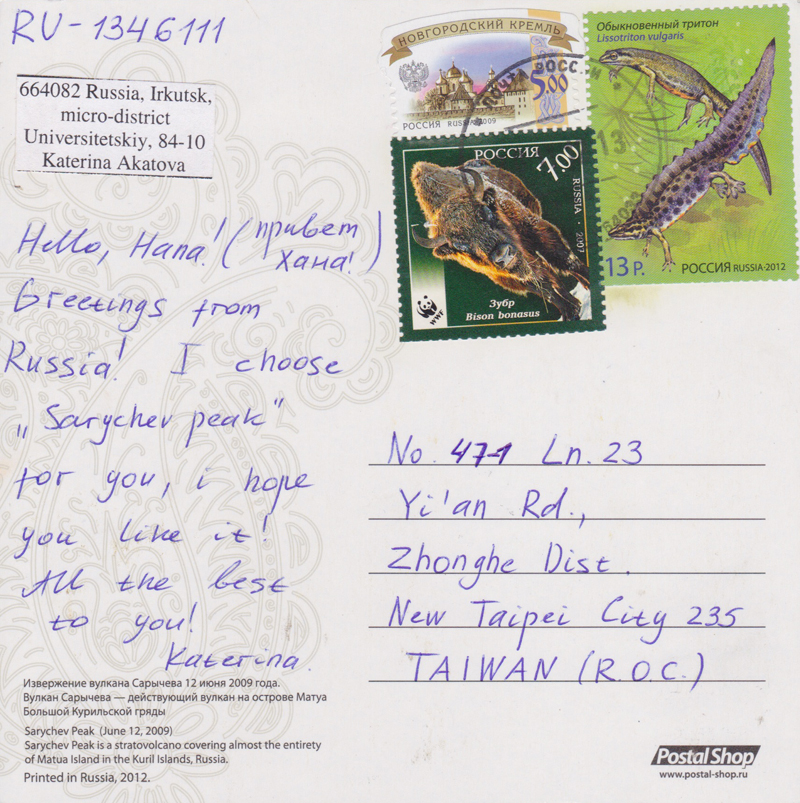 RU-1346111
664082 Russia, Irkutsk,
micro-district
Universitetskiy, 84-10
Katerina Akatova
НОВГОРОДСКИЙ КРЕМЛЬ
5.00
РОССИЯ RUSSIA 2009
Обыкновенный тритон
Lissotriton vulgaris
13 Р. РОССИЯ RUSSIA·2012
РОССИЯ
7.00
RUSSIA · 2003
Зубр
Bison bonasus
WWF
Hello, Hana! (привет
Хана!)
Greetings from
Russia! I choose
„Sarychev peak"
for you, i hope
you like it!
All the best
to you!
Katerina.
No. 47-1 Ln. 23
Yi'an Rd.,
Zhonghe Dist.
New Taipei City 235
TAIWAN (R.O.C.)
Извержение вулкана Сарычева 12 июня 2009 года.
Вулкан Сарычева — действующий вулкан на острове Матуа
Большой Курильской гряды
Sarychev Peak (June 12, 2009)
Sarychev Peak is a stratovolcano covering almost the entirety
of Matua Island in the Kuril Islands, Russia.
Printed in Russia, 2012.
PostalShop
www.postal-shop.ru